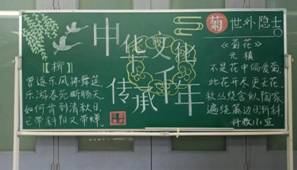 中华文化
传承千年
【柳】
曾逐东风拂舞筵
乐游春苑断肠天
如何肯到清秋日
已带斜阳又带蝉
菊 世外隐士
《菊花》
元稹
不是花中偏爱菊
此花开尽更无花
秋丛绕舍似陶家
遍绕篱边日渐斜